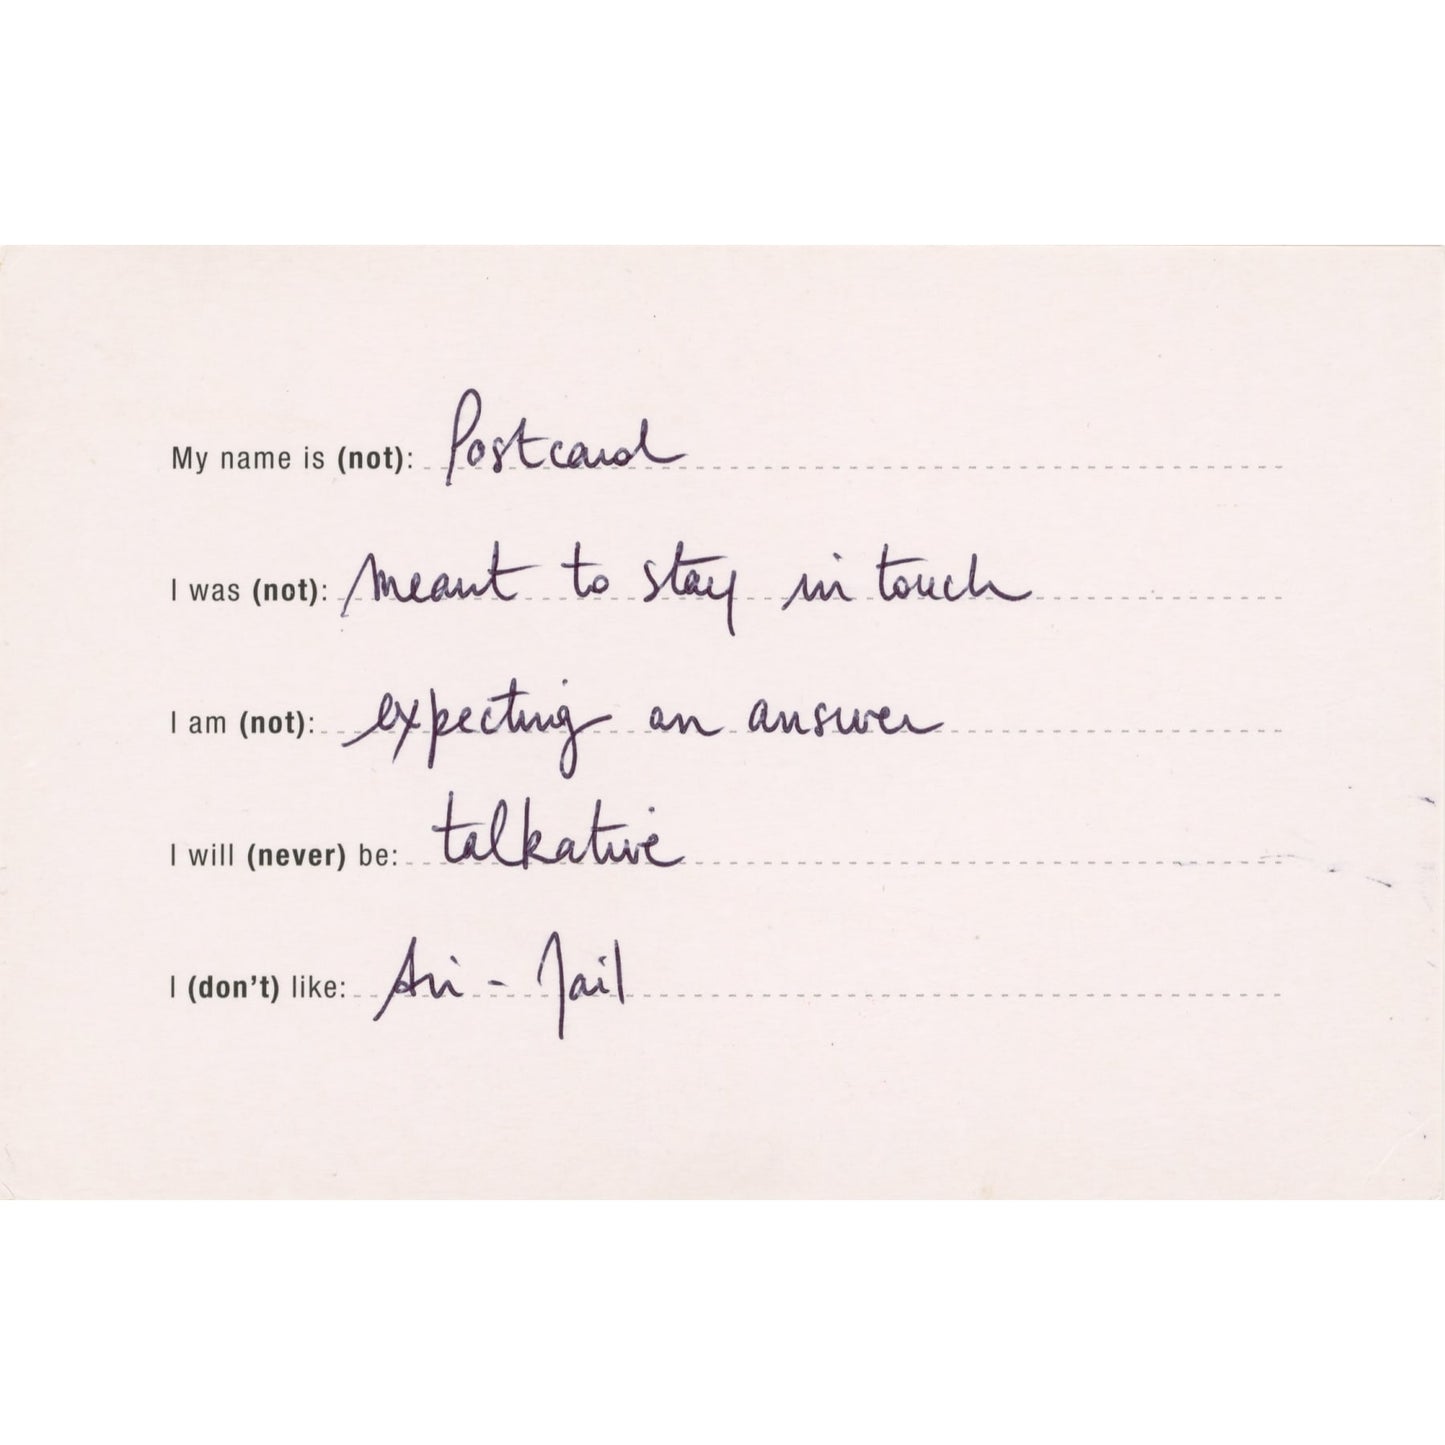 My name is (not): Postcard
I was (not): meant to stay in touch
I am (not): expecting an answer
I will (never) be: talkative
I (don't) like: Air - Jail